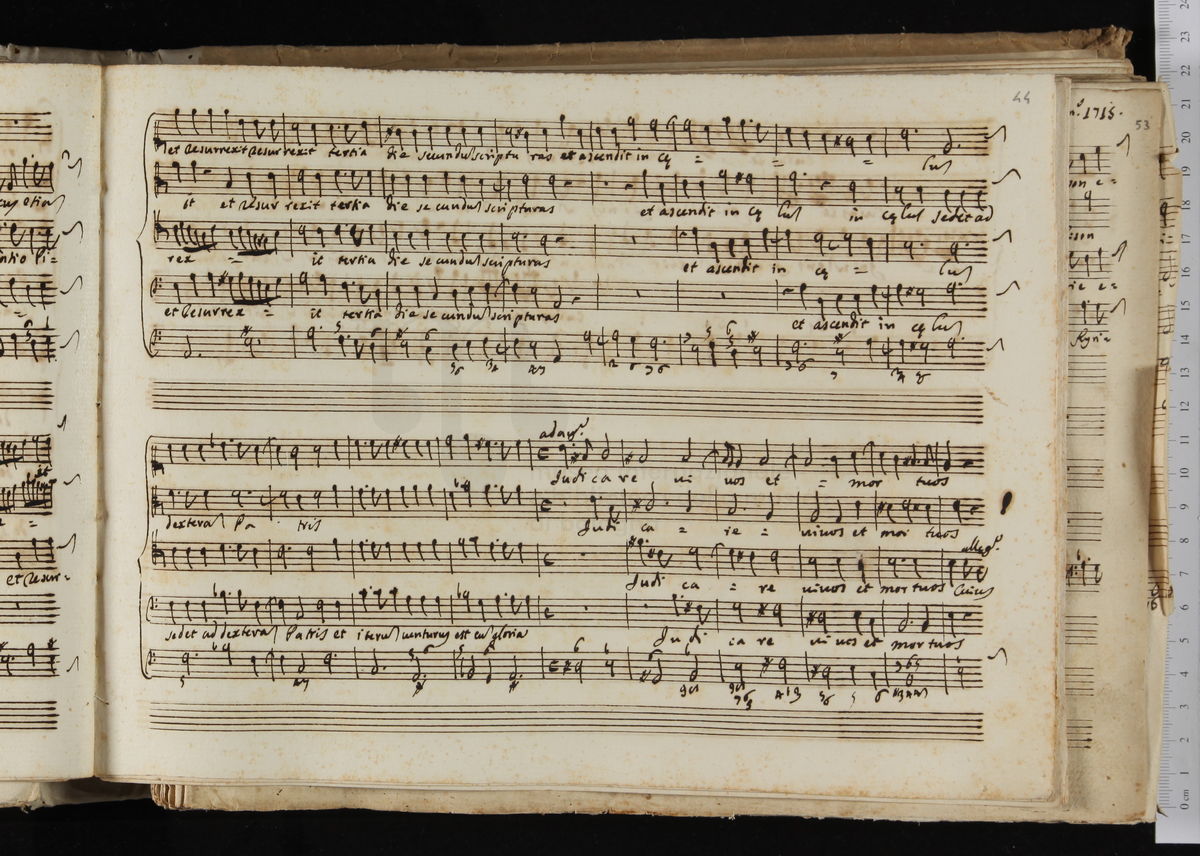 44
et Resurrexit Resurrexit tertia die secundu scriptu ras et ascendit in cę = = = lus
it et resur rexit tertia die se cundu scripturas et ascendit in cę lus in cę lus sedet ad
rex = it tertia die se cundu scripturas et ascendit in cę = lus
et Resurrex = it tertia die se cundu scripturas et ascendit in cę lus
adag.º
Judi ca re ui uos et = mor tuos
dextera Pa tris Judi ca = re = uiuos et mor tuos
alleg.º
Judi ca = re uiuos et mor tuos Cuius
sedet ad dextera Patris et iteru uenturus est cu gloria Ju di ca re ui uos et mor tuos
et Resur=
1715.
53
Kyri=